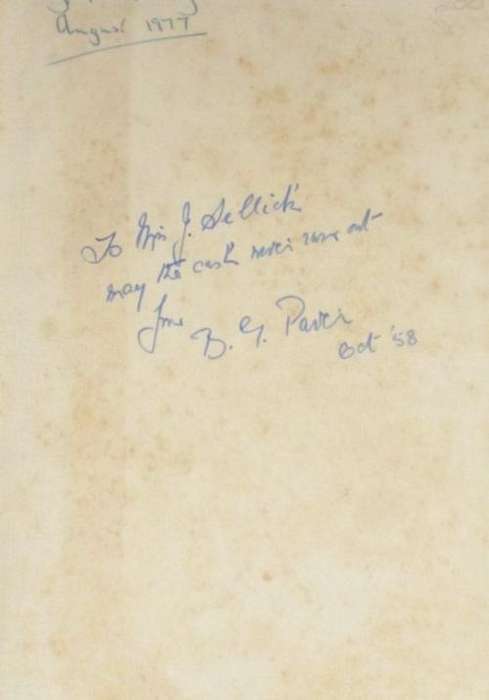 August 1977
To Mrs J. Sellick
may the cash never runs out
from
B. G. Paver
Oct '58